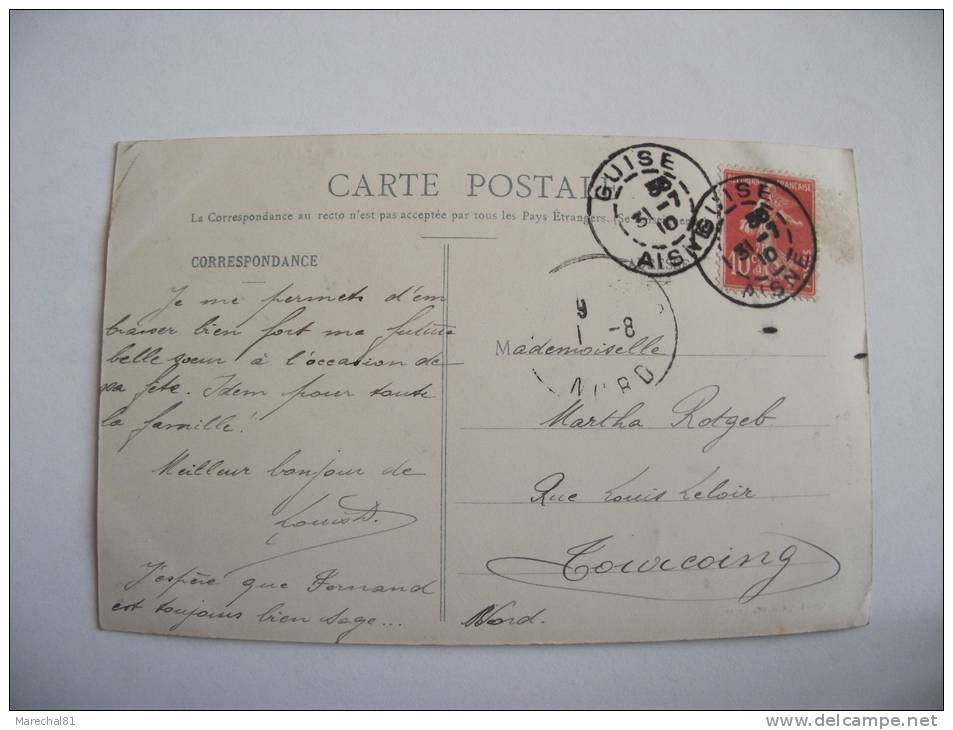 CARTE POSTALE
La Correspondance au recto n'est pas acceptée par tous les Pays Étrangers.
CORRESPONDANCE
GUISE
31 10
AISNE
GUISE
31 10
AISNE
FRANÇAISE
10
9
1 -8
NORD
Je me permets d'em
brasser bien fort ma future
belle soeur à l'occasion de
sa fête. Idem pour toute
la famille!
Meilleur bonjour de
Louis D.
J'espère que Fernand
est toujours bien sage...
Mademoiselle
Martha Rotgeb
Rue Louis Leloir
Tourcoing
Nord.
Marechal81
www.delcampe.net